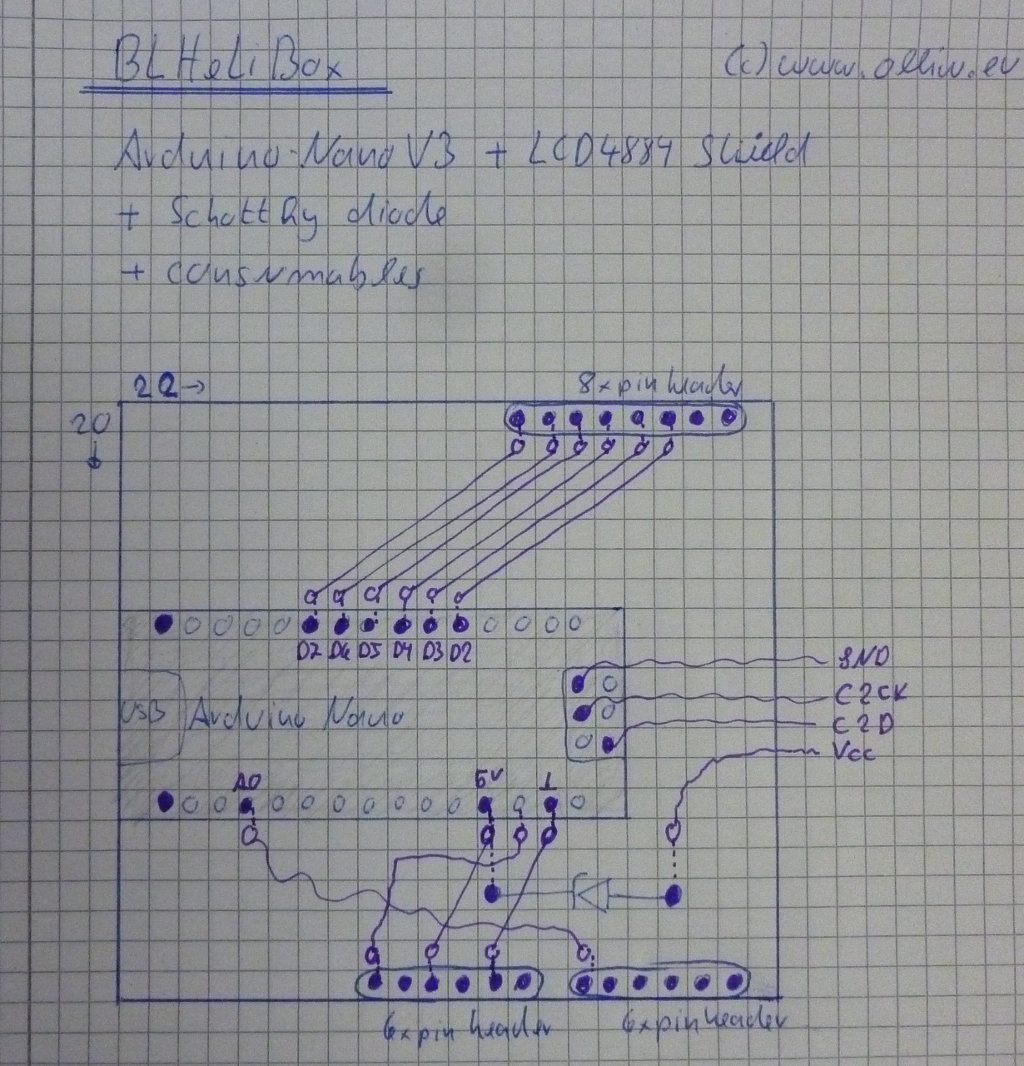 BLHeliBox
(c) www.olliw.eu
Arduino-Nano V3 + LCD4884 Shield
+ Schottky diode
+ consumables
22→
8xpin header
20
D7 D6 D5 D4 D3 D2
GND
C2CK
USB Arduino Nano
C2D
Vcc
A0 5V ⊥
6xpin header 6xpin header